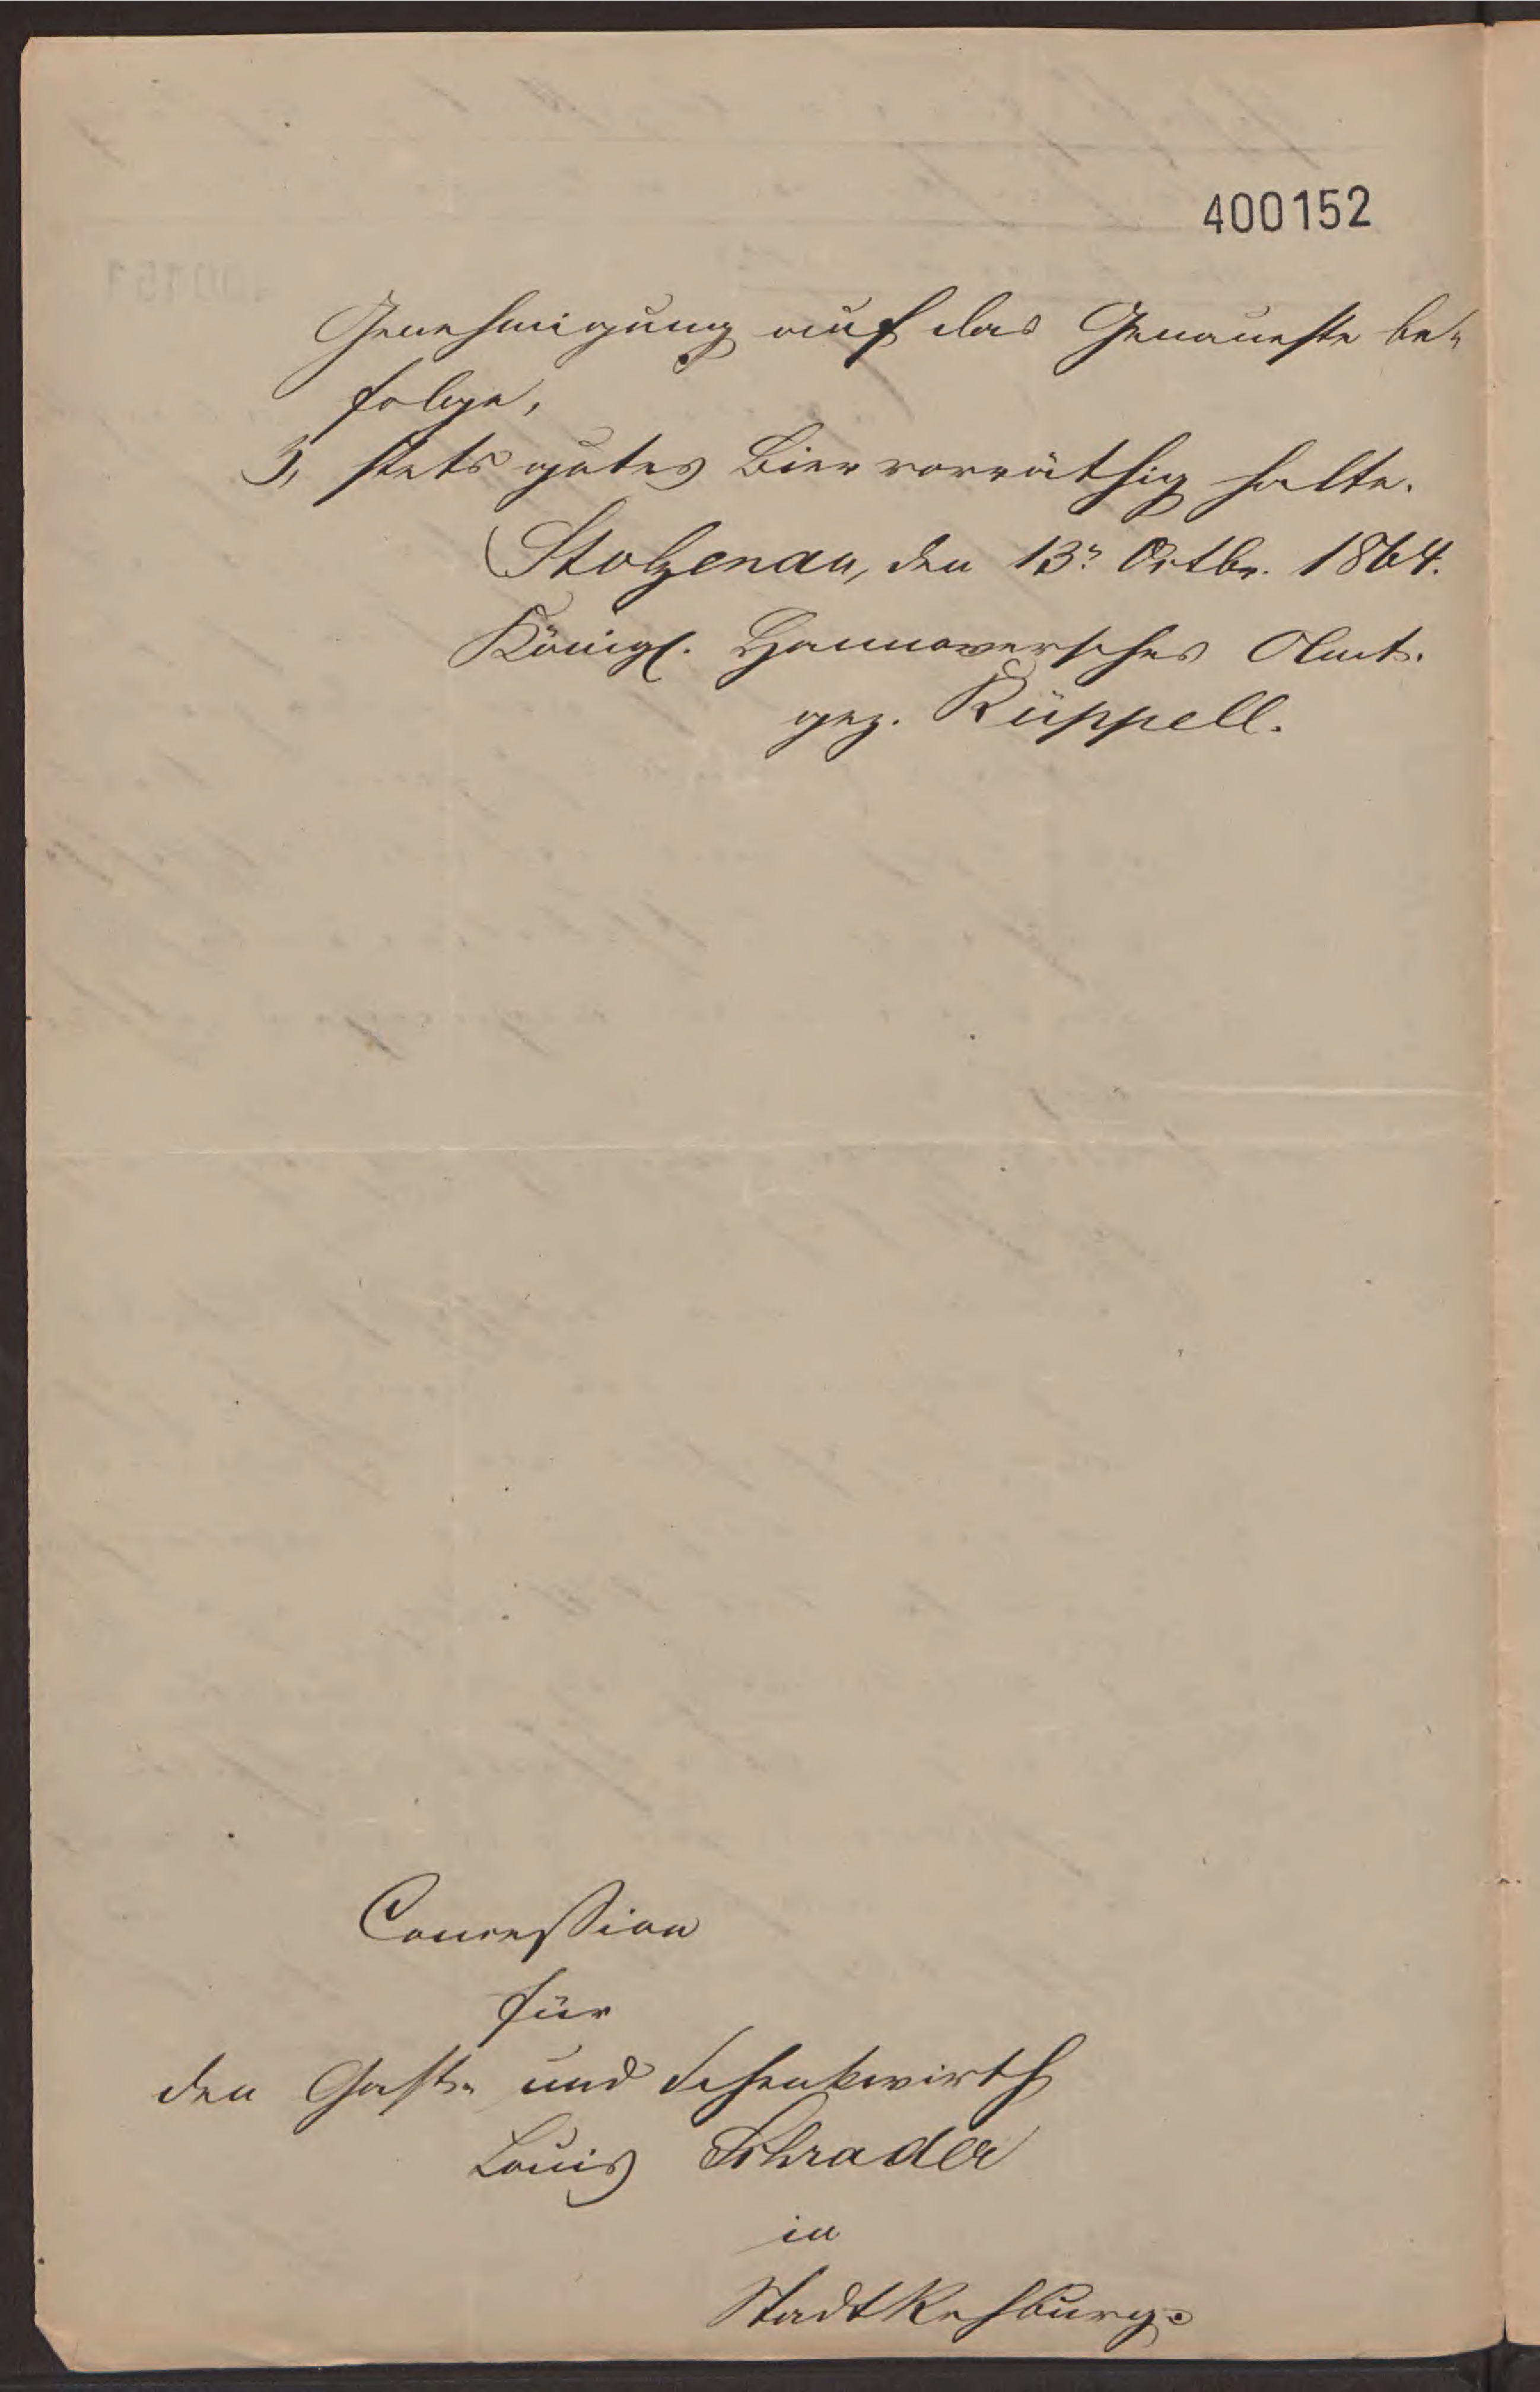 400152
Genehmigung auf das Genaueste be-
folge,
3, stets gutes Bier vorräthig halte.
Stolzenau, den 13n Octbr. 1864.
Königl. Hannoversches Amt.
gez. Rüppell.
Concession
für
den Gast- und Schenkwirth
Louis Schrader
in
Stadt Rehburg.